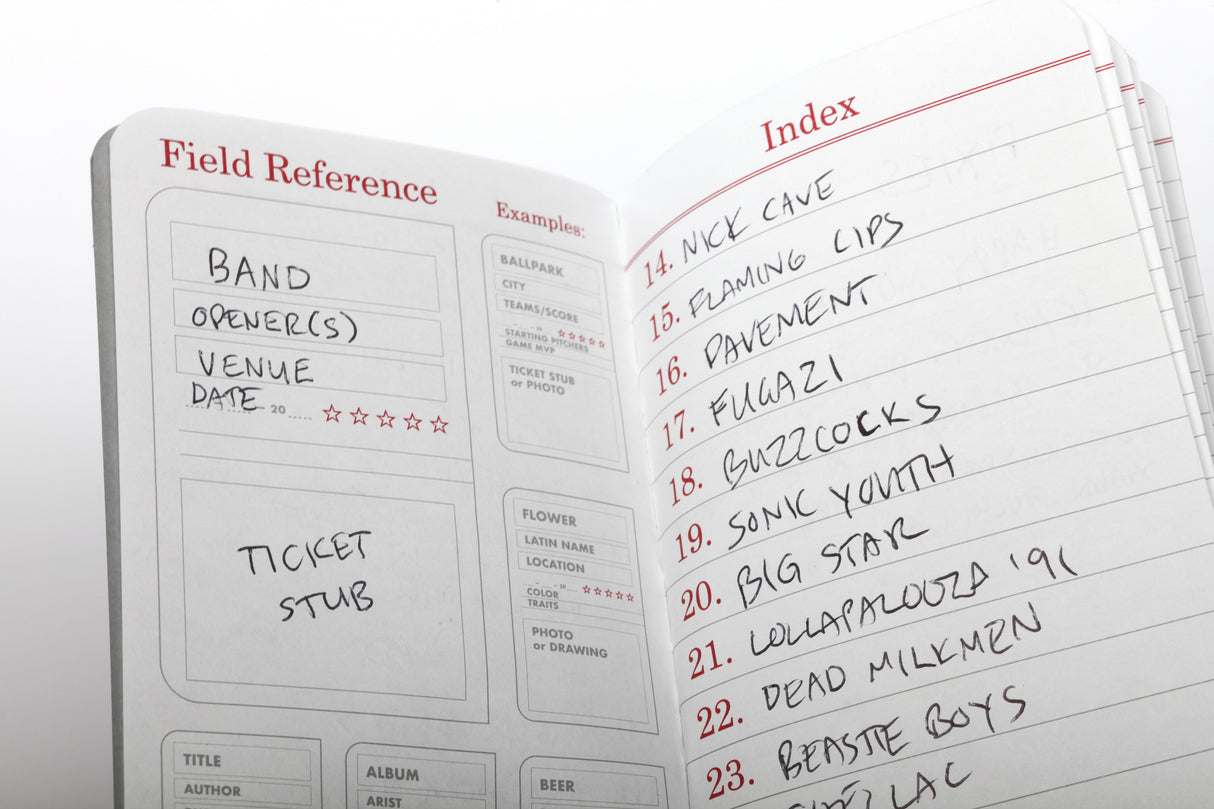 Field Reference
BAND
OPENER(S)
VENUE
DATE 20
TICKET
STUB
Examples:
BALLPARK
CITY
TEAMS/SCORE
20
STARTING PITCHERS
GAME MVP
TICKET STUB
or PHOTO
FLOWER
LATIN NAME
LOCATION
20
COLOR
TRAITS
PHOTO
or DRAWING
TITLE
AUTHOR
ALBUM
ARIST
BEER
Index
14. NICK CAVE
15. FLAMING LIPS
16. PAVEMENT
17. FUGAZI
18. BUZZCOCKS
19. SONIC YOUTH
20. BIG STAR
21. LOLLAPALOOZA '91
22. DEAD MILKMEN
23. BEASTIE BOYS